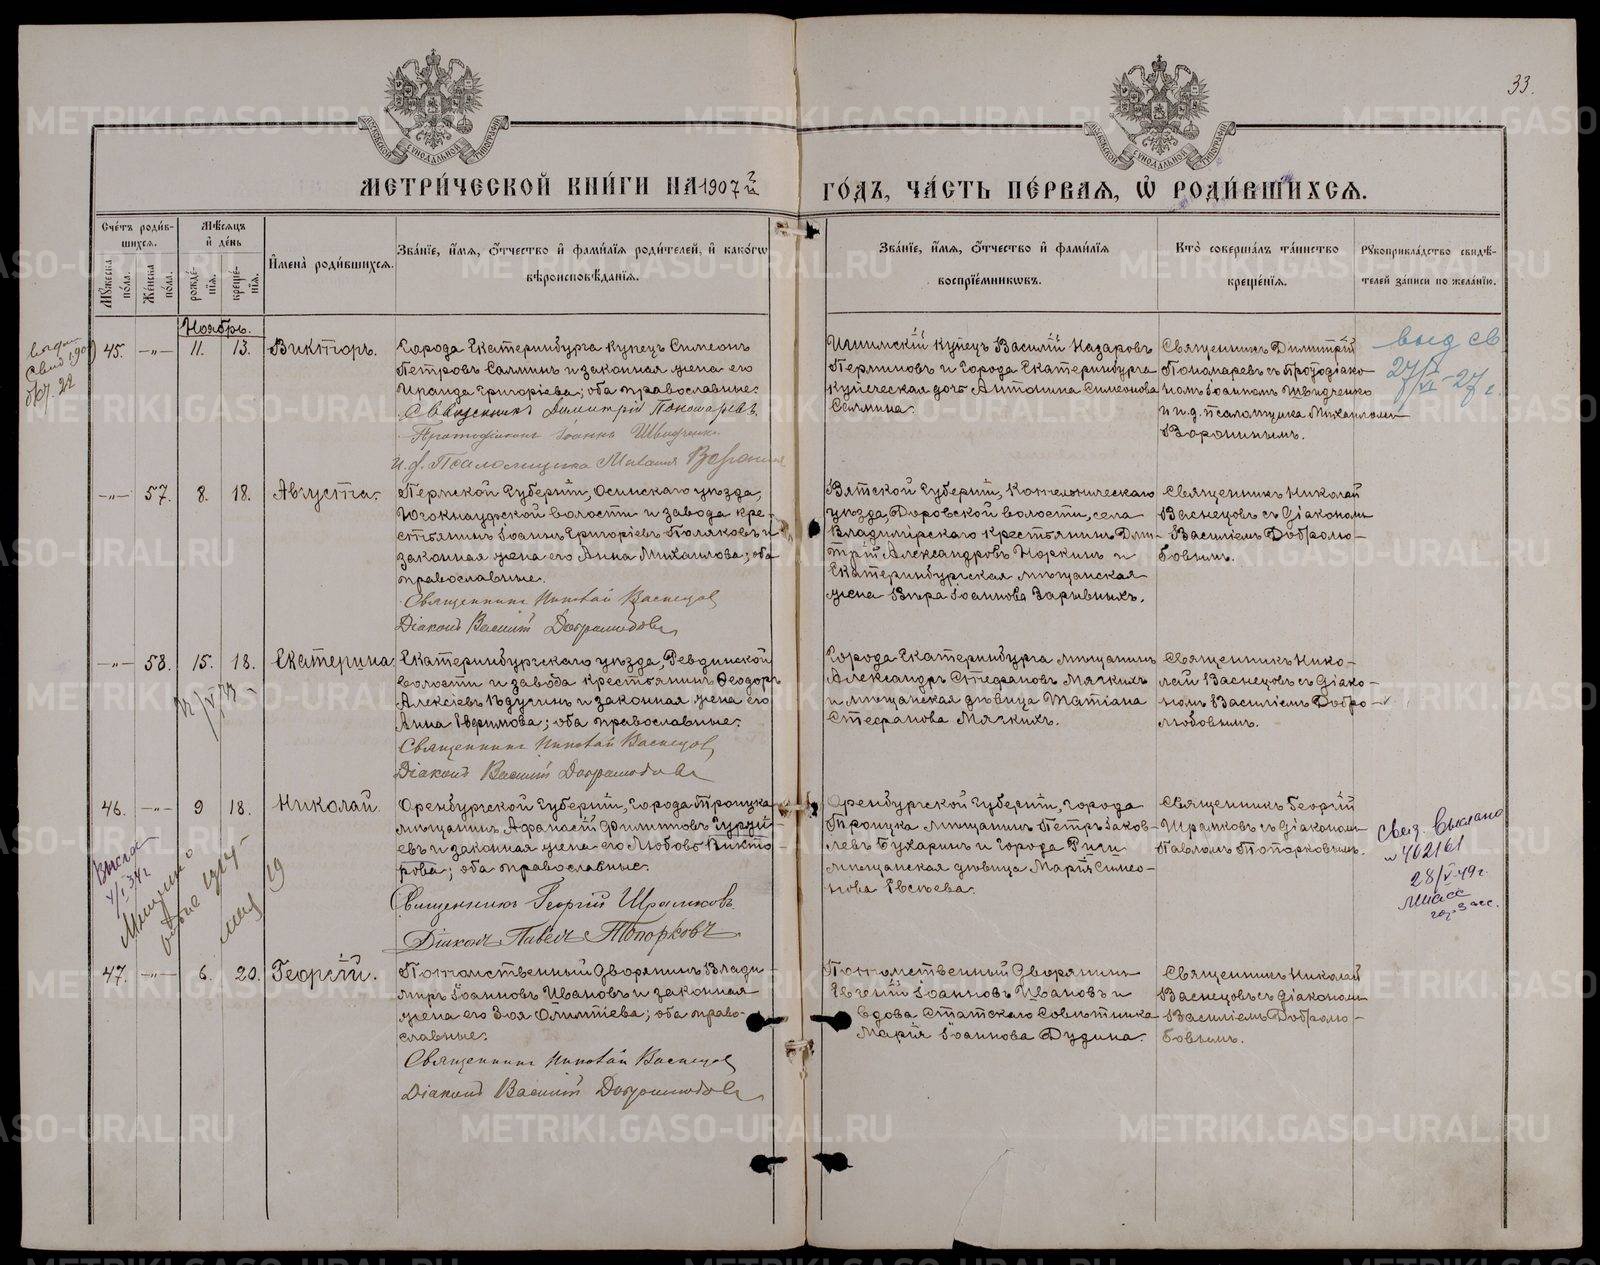 33.
МЕТРИ́ЧЕСКОЙ КНИ́ГИ НА 1907 й
ГО́ДЪ, ЧА́СТЬ ПЕ́РВАЯ, Ѡ РОДИ́ВШИХСЯ.
Сче́тъ роди́в-
шихся.
Му́жеска по́ла.
Же́нска по́ла.
Мѣ́сяцъ
и́ де́нь
рожде́-
нїя.
креще́-
нїя.
И́мена̀ роди́вшихся.
Зва́нїе, и́мя, о́тчество и́ фами́лїя роди́телей, и́ како́гѡ
вѣроисповѣ́данїя.
Зва́нїе, и́мя, о́тчество и́ фами́лїя
воспрїе́мникѡвъ.
Кто̀ соверша́лъ та́инство
креще́нїя.
Рꙋкоприкла́дство свидѣ́-
телей за́писи по жела́нїю.
Ноябрь.
45.
—„—
11.
13.
Викторъ.
Города Екатеринбурга купецъ Симеонъ
Петровъ Салминъ и законная жена его
Ираида Григоріева; оба православные.
Священникъ Димитрій Пономаревъ.
Протодіаконъ Іоаннъ Швидченко
и.д. Псаломщика Михаилъ Воронинъ
Ишимскій купецъ Василій Назаровъ
Перминовъ и города Екатеринбурга
купеческая дочь Антонина Симеонова
Салмина.
Священникъ Димитрій
Пономаревъ съ протодіако-
номъ Іоанномъ Швидченко
и и.д. псаломщика Михаиломъ
Воронинымъ.
выд св
27/VI-27 г.
—„—
57.
8.
18.
Августа.
Пермской губерніи, Осинскаго уѣзда,
Югокнауфской волости и завода кре-
стьянинъ Іоаннъ Григоріевъ Поляковъ и
законная жена его Анна Михаилова; оба
православные.
Священникъ Николай Васнецовъ
Діаконъ Василій Добролюбовъ
Вятской губерніи, Котельническаго
уѣзда, Даровской волости, села
Владимірскаго крестьянинъ Дми-
трій Александровъ Норкинъ и
Екатеринбургская мѣщанская
жена Вѣра Іоаннова Зарывныхъ.
Священникъ Николай
Васнецовъ съ діакономъ
Василіемъ Добролю-
бовымъ.
—„—
58.
15.
18.
Екатерина.
Екатеринбургскаго уѣзда, Ревдинской
волости и завода крестьянинъ Ѳеодоръ
Алексіевъ и законная жена его
Анна Ефимова; оба православные.
Священникъ Николай Васнецовъ
Діаконъ Василій Добролюбовъ
Города Екатеринбурга мѣщанинъ
Александръ Стефановъ Мягкихъ
и мѣщанская дѣвица Татіана
Стефанова Мягкихъ.
Священникъ Нико-
лай Васнецовъ съ діако-
номъ Василіемъ Добро-
любовымъ.
46.
—„—
9
18.
Николай.
Оренбургской губерніи, города Троицка
мѣщанинъ Аѳанасій Филипповъ
евъ и законная жена его Любовь Викто-
рова; оба православные.
Священникъ Георгій Шрамковъ.
Діаконъ Павелъ Топорковъ
Оренбургской губерніи, города
Троицка мѣщанинъ Петръ Іаков-
левъ Бухаринъ и города Риги
мѣщанская дѣвица Марія Симео-
нова Евсѣева.
Священникъ Георгій
Шрамковъ съ діакономъ
Павломъ Топорковымъ.
Свид. выслано
№ 402161
28/V-49 г.
Миасс
гор. Загс.
47.
—„—
6.
20.
Георгій.
Потомственный дворянинъ Влади-
міръ Іоанновъ Ивановъ и законная
жена его Зоя Олимпіева; оба право-
славные.
Священникъ Николай Васнецовъ
Діаконъ Василій Добролюбовъ
Потомственный дворянинъ
Евгеній Іоанновъ Ивановъ и
вдова Статскаго Совѣтника
Марія Іоаннова Дудина.
Священникъ Николай
Васнецовъ съ діакономъ
Василіемъ Добролю-
бовымъ.